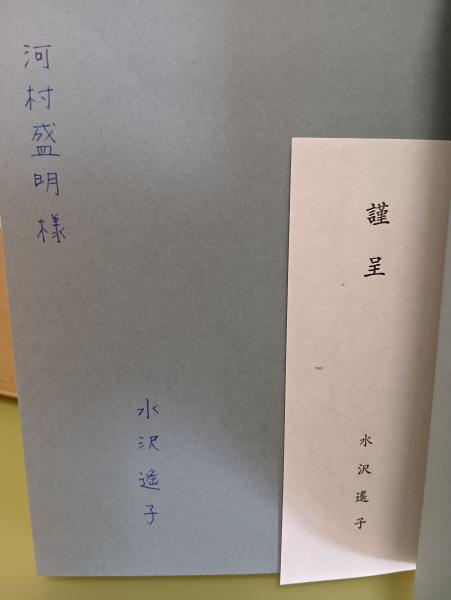 謹呈
水沢遙子
河村盛明様
水沢遙子